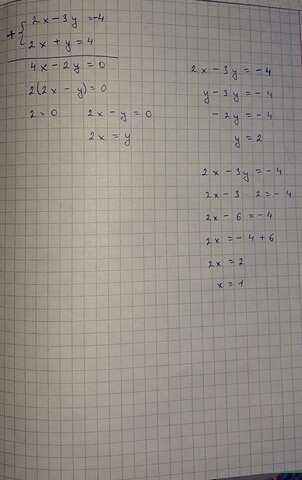 + { 2x - 3y = -4
2x + y = 4
4x - 2y = 0
2(2x - y) = 0
2 = 0    2x - y = 0
2x = y
2x - 3y = -4
y - 3y = -4
- 2y = -4
y = 2
2x - 3y = -4
2x - 3 2 = -4
2x - 6 = -4
2x = -4 + 6
2x = 2
x = 1